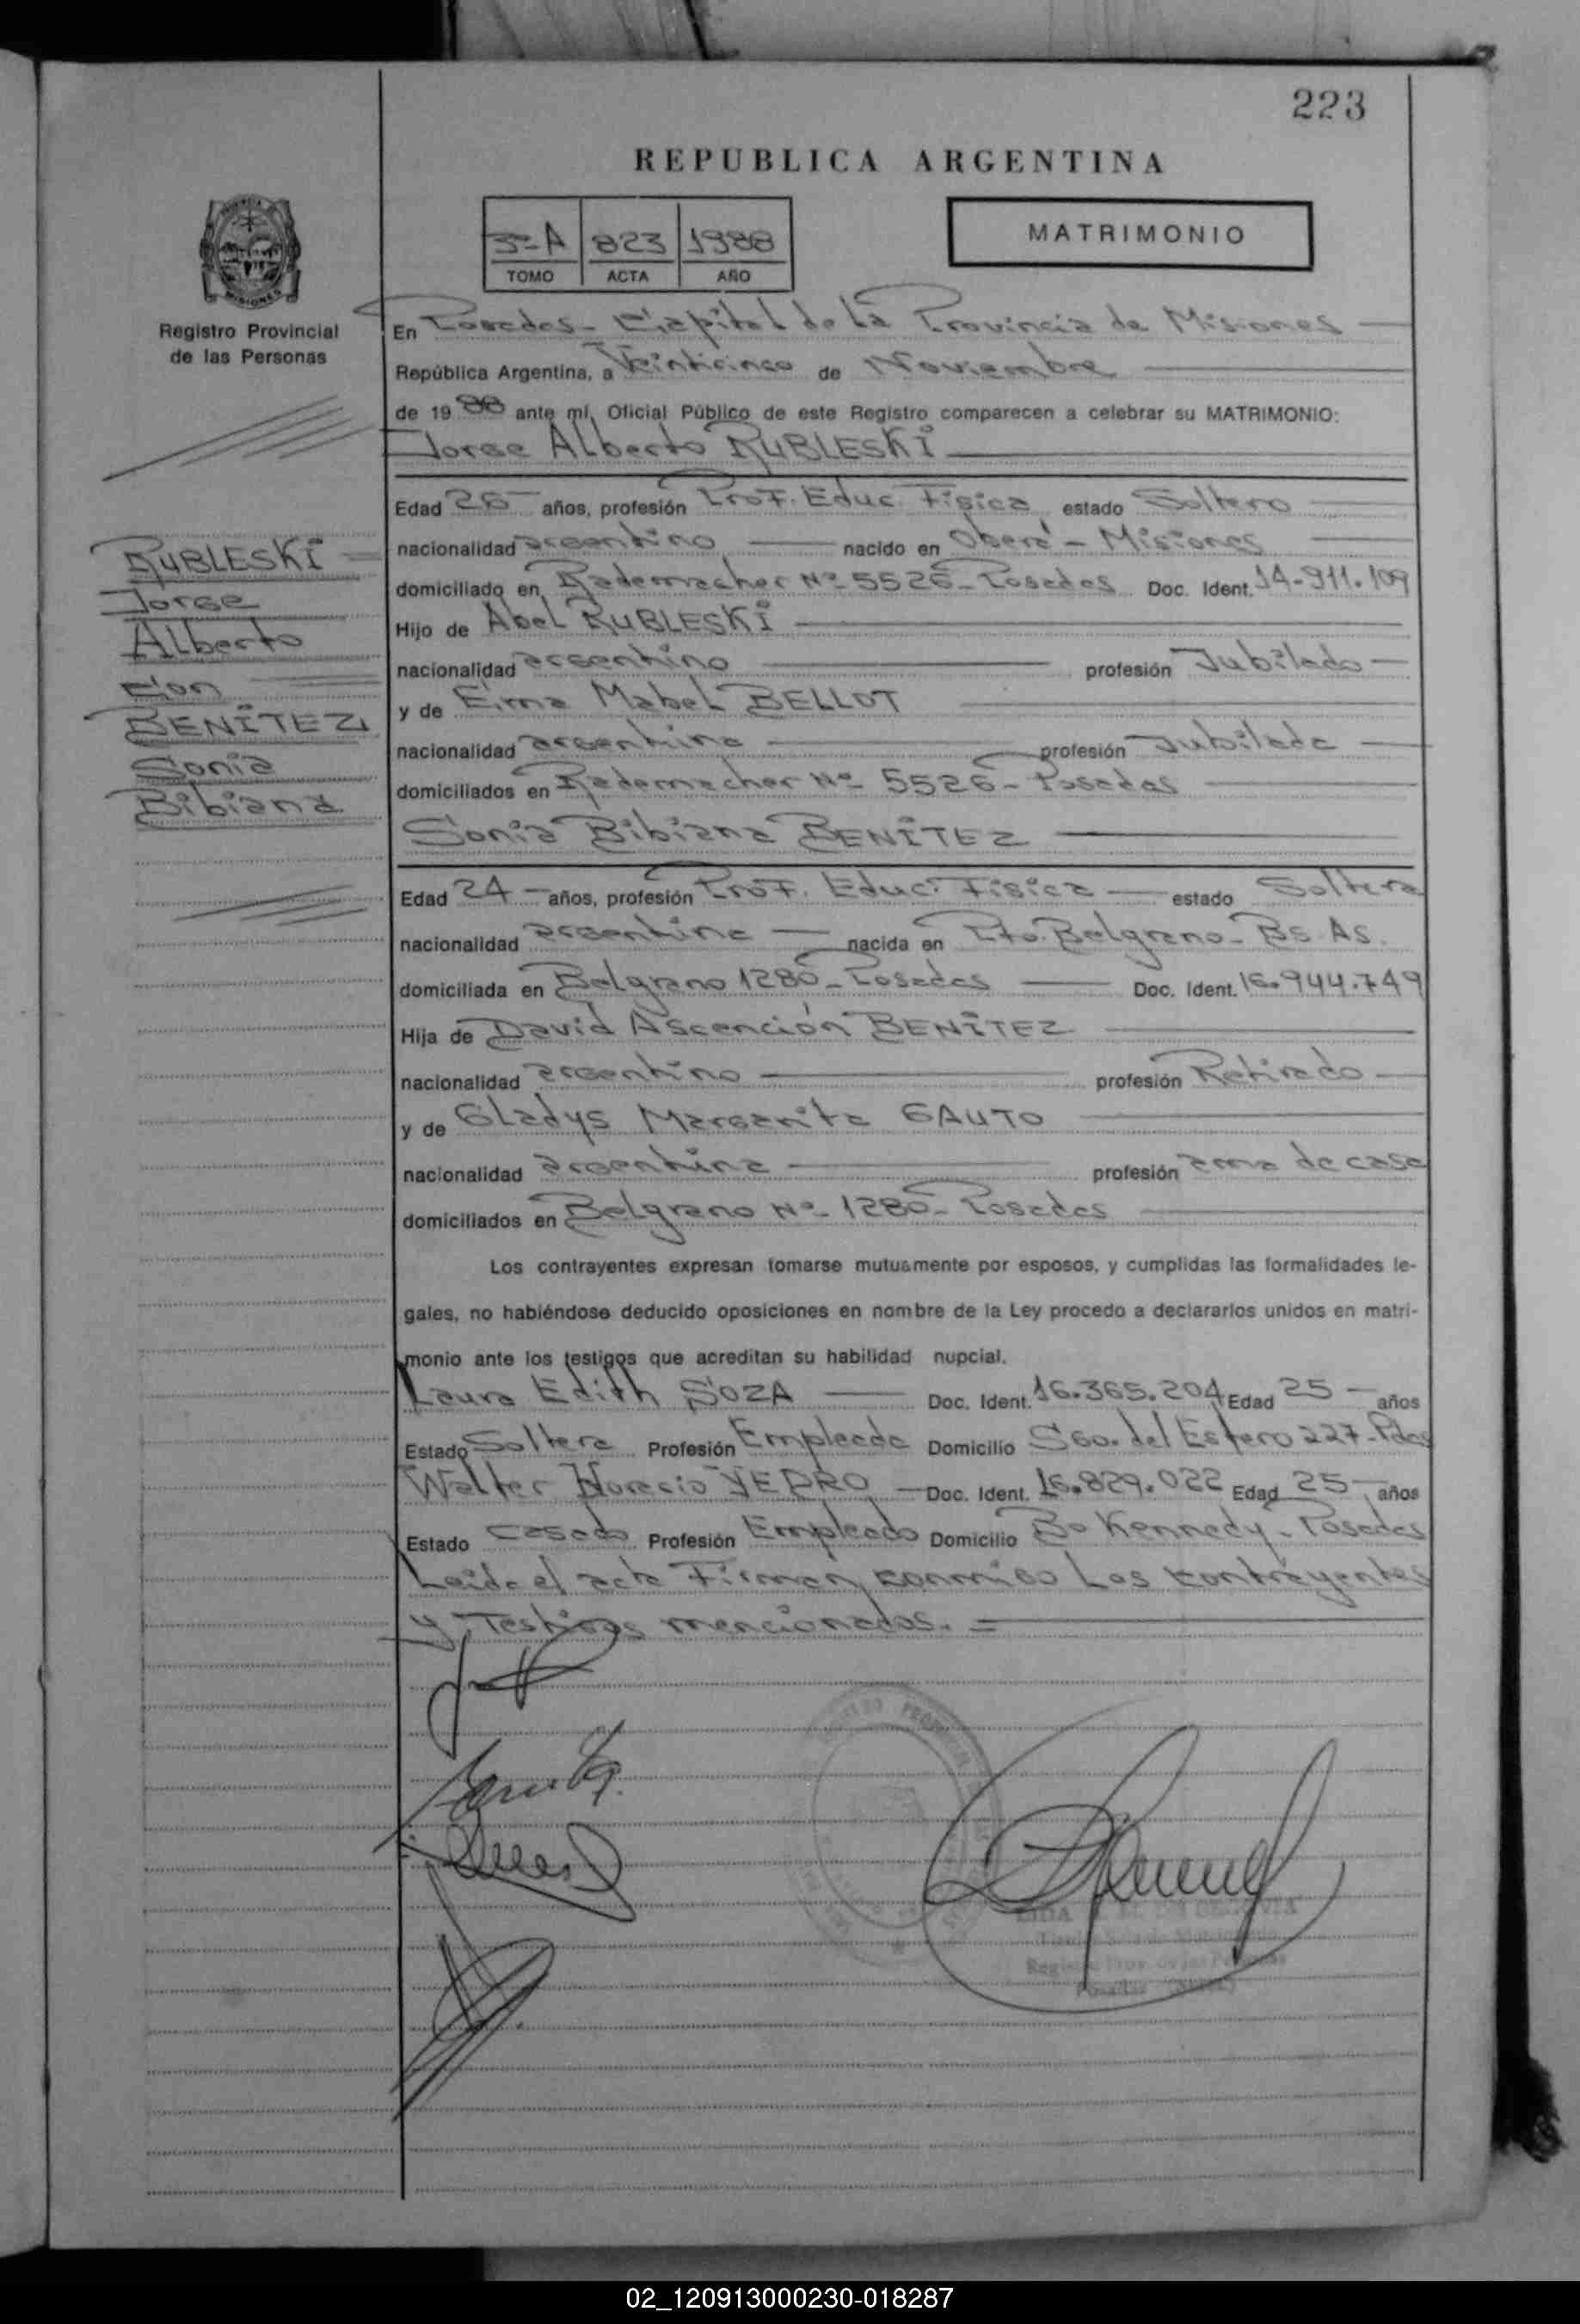 223
REPUBLICA ARGENTINA
3º A 823 1988
TOMO ACTA AÑO
MATRIMONIO
MISIONES
Registro Provincial
de las Personas
En Posadas - Capital de la Provincia de Misiones
República Argentina, a Veinticinco de Noviembre
de 1988 ante mí, Oficial Público de este Registro comparecen a celebrar su MATRIMONIO:
Jorge Alberto RUBLESKI
Edad 26 años, profesión Prof. Educ. Fisica estado Soltero
nacionalidad argentino nacido en Oberá - Misiones
domiciliado en Rademacher Nº 5526 - Posadas Doc. Ident. 14.911.109
Hijo de Abel RUBLESKI
nacionalidad argentino profesión Jubilado
y de Mabel BELLOT
nacionalidad argentina profesión Jubilada
domiciliados en Rademacher Nº 5526 - Posadas
RUBLESKI
Jorge
Alberto
con
BENÍTEZ
Sonia
Bibiana
Sonia Bibiana BENÍTEZ
Edad 24 años, profesión Prof. Educ. Fisica estado Soltera
nacionalidad argentina nacida en Pto. Belgrano - Bs. As.
domiciliada en Belgrano 1280 - Posadas Doc. Ident. 16.944.749
Hija de David Ascención BENÍTEZ
nacionalidad argentino profesión Retirado
y de Gladys Margarita GAUTO
nacionalidad argentina profesión ama de casa
domiciliados en Belgrano Nº 1280 - Posadas
Los contrayentes expresan tomarse mutuamente por esposos, y cumplidas las formalidades le-
gales, no habiéndose deducido oposiciones en nombre de la Ley procedo a declararlos unidos en matri-
monio ante los testigos que acreditan su habilidad nupcial.
Laura Edith SOZA Doc. Ident. 16.365.204 Edad 25 años
Estado Soltera Profesión Empleada Domicilio Sgo. del Estero 227 - Pdas
Walter Horacio YEDRO Doc. Ident. 16.829.022 Edad 25 años
Estado casado Profesión Empleado Domicilio Bº Kennedy - Posadas
Leida el acta Firman conmigo Los contrayentes
y Testigos mencionados. =
02_120913000230-018287